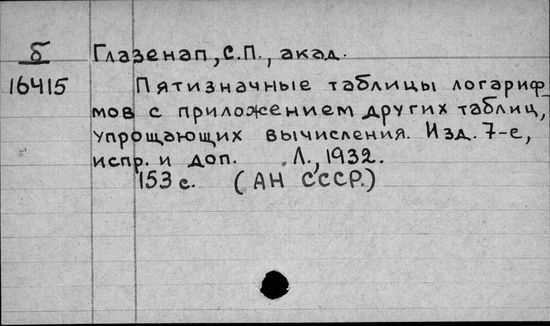 б Глазенап, С.П., акад.
16415 Пятизначные таблицы логариф-
мов с приложением других таблиц,
упрощающих вычисления. Изд. 7-е,
испр. и доп. Л., 1932.
153 с. (АН СССР.)